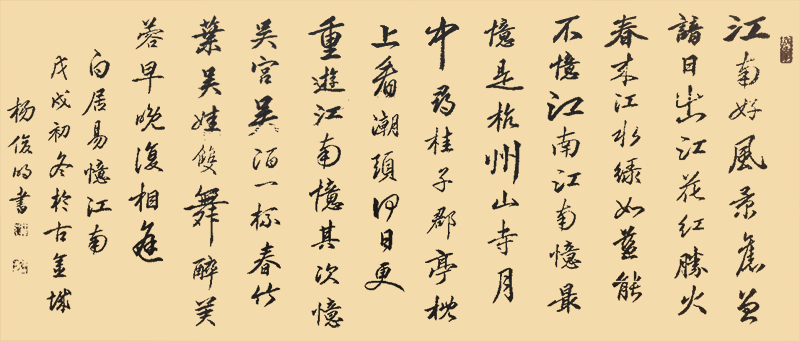 江南好風景舊曾
諳日出江花紅勝火
春來江水綠如藍能
不憶江南江南憶最
憶是杭州山寺月
中尋桂子郡亭枕
上看潮頭何日更
重遊江南憶其次憶
吳宮吳酒一杯春竹
葉吳娃雙舞醉芙
蓉早晚復相逢
白居易憶江南
戊戌初冬於古金城
杨俊明書